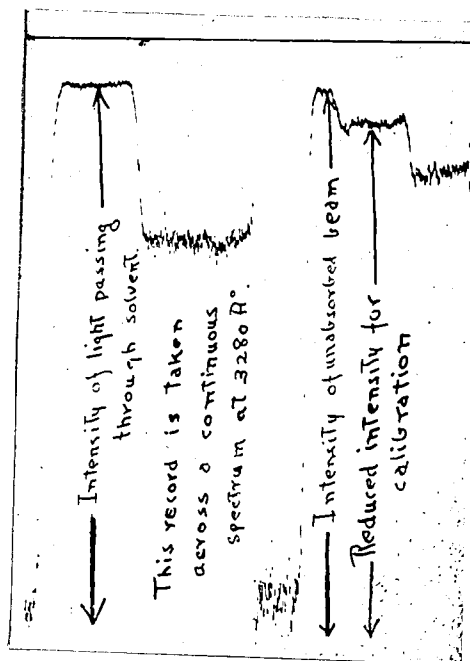 Intensity of light passing
through solvent.
This record is taken
across a continuous
spectrum at 3280 A°.
Intensity of unabsorbed beam
Reduced intensity for
calibration